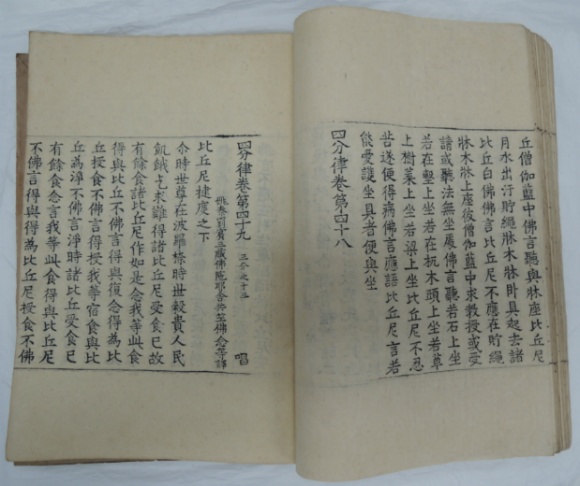 丘僧伽藍中佛言聽與牀座比丘尼
月水出汙貯繩牀木牀卧具起去諸
比丘白佛佛言比丘尼不應在貯繩
牀木牀上處後僧伽藍中求教授或受
請或聽法無坐處佛言聽若石上坐
若在墼上坐若在杌木頭上坐若草
上樹葉上坐若梁上坐比丘尼不忍
苦遂便得病佛言應語比丘尼言若
能愛護坐具者便與坐
四分律卷第四十八
四分律卷第四十九 三分之十三 唱
姚秦罽賓三藏佛陀耶舍共竺佛念等譯
比丘尼揵度之下
尒時世尊在波羅㮈時世穀貴人民
飢餓乞求難得諸比丘尼受食已故
有餘食諸比丘尼作如是念我等此食
得與比丘不佛言得與復念得為比
丘授食不佛言得授我等宿食與比
丘為淨不佛言淨時諸比丘受食已
有餘食念言我等此食得與比丘尼
不佛言得與得為比丘尼授食不佛